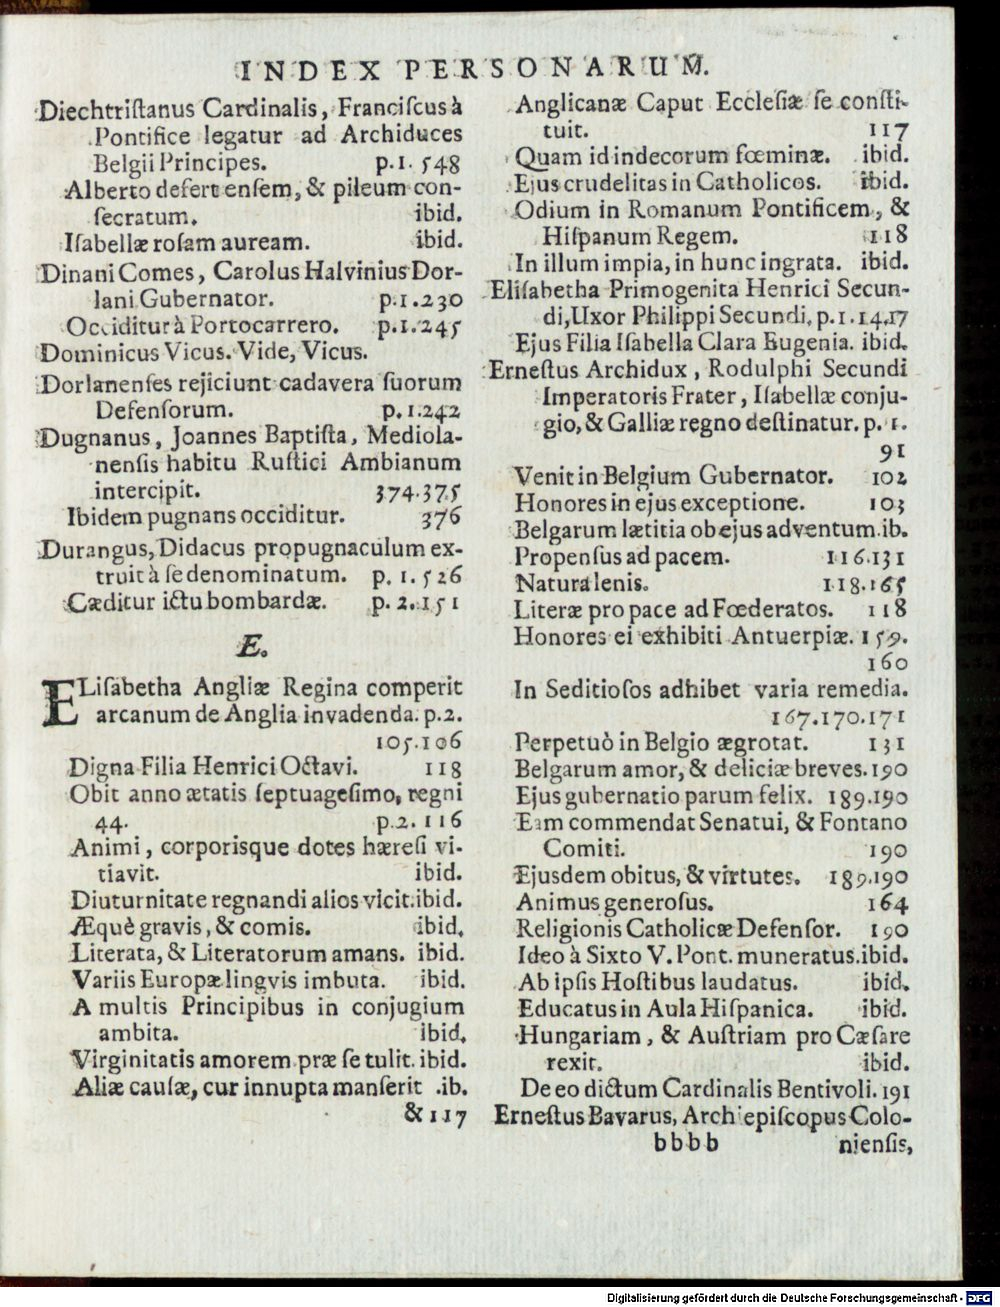 INDEX PERSONARUM.
Diechtriſtanus Cardinalis, Franciſcus à
Pontifice legatur ad Archiduces
Belgii Principes. p.1. 548
Alberto defert enſem, & pileum con-
ſecratum. ibid.
Iſabellæ roſam auream. ibid.
Dinani Comes, Carolus Halvinius Dor-
lani Gubernator. p.1.230
Occiditur à Portocarrero. p.1.245
Dominicus Vicus. Vide, Vicus.
Dorlanenſes rejiciunt cadavera ſuorum
Defenſorum. p.1.242
Dugnanus, Joannes Baptiſta, Mediola-
nenſis habitu Ruſtici Ambianum
intercipit. 374.375
Ibidem pugnans occiditur. 376
Durangus, Didacus propugnaculum ex-
truit à ſe denominatum. p. 1.526
Cæditur ictu bombardæ. p.2.151
E.
ELiſabetha Angliæ Regina comperit
arcanum de Anglia invadenda. p.2.
105.106
Digna Filia Henrici Octavi. 118
Obit anno ætatis ſeptuageſimo, regni
44. p.2. 116
Animi, corporisque dotes hæreſi vi-
tiavit. ibid.
Diuturnitate regnandi alios vicit. ibid.
Æquè gravis, & comis. ibid.
Literata, & Literatorum amans. ibid.
Variis Europæ lingvis imbuta. ibid.
A multis Principibus in conjugium
ambita. ibid.
Virginitatis amorem præ ſe tulit. ibid.
Aliæ cauſæ, cur innupta manſerit .ib.
& 117
Anglicanæ Caput Eccleſiæ ſe conſti-
tuit. 117
Quam id indecorum fœminæ. ibid.
Ejus crudelitas in Catholicos. ibid.
Odium in Romanum Pontificem, &
Hiſpanum Regem. 118
In illum impia, in hunc ingrata. ibid.
Eliſabetha Primogenita Henrici Secun-
di, Uxor Philippi Secundi. p.1.14.17
Ejus Filia Iſabella Clara Eugenia. ibid.
Erneſtus Archidux, Rodulphi Secundi
Imperatoris Frater, Iſabellæ conju-
gio, & Galliæ regno deſtinatur. p. 1.
91
Venit in Belgium Gubernator. 102
Honores in ejus exceptione. 103
Belgarum lætitia ob ejus adventum. ib.
Propenſus ad pacem. 116.131
Natura lenis. 118.165
Literæ pro pace ad Fœderatos. 118
Honores ei exhibiti Antuerpiæ. 159.
160
In Seditioſos adhibet varia remedia.
167.170.171
Perpetuò in Belgio ægrotat. 131
Belgarum amor, & deliciæ breves. 190
Ejus gubernatio parum felix. 189.190
Eam commendat Senatui, & Fontano
Comiti. 190
Ejusdem obitus, & virtutes. 189.190
Animus generoſus. 164
Religionis Catholicæ Defenſor. 190
Ideo à Sixto V. Pont. muneratus. ibid.
Ab ipſis Hoſtibus laudatus. ibid.
Educatus in Aula Hiſpanica. ibid.
Hungariam, & Auſtriam pro Cæſare
rexit. ibid.
De eo dictum Cardinalis Bentivoli. 191
Erneſtus Bavarus, Archiepiſcopus Colo-
bbbb nienſis,
Digitalisierung gefördert durch die Deutsche Forschungsgemeinschaft - DFG